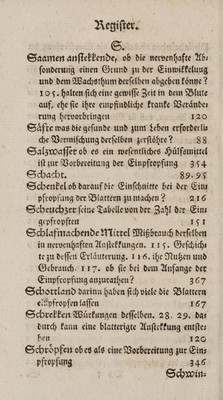 Register.
S.
Saamen ansteckende, ob die nervenhafte Ab-
sonderung einen Grund zu der Einwickelung
und dem Wachsthum derselben abgeben könne?
105. halten sich eine gewisse Zeit in dem Blute
auf, ehe sie ihre empfindliche kranke Verände-
rung hervorbringen 120
Säfte was die gesunde und zum Leben erforderli-
che Vermischung derselben zerstöhre? 88
Salzwasser ob es ein wesentliches Hülfsmittel
ist zur Vorbereitung der Einpfropfung 354
Schacht. 89. 95
Schenkel ob darauf die Einschnitte bei der Ein-
pfropfung der Blattern zu machen? 216
Scheuchzer seine Tabelle von der Zahl der Ein-
gepfropften 151
Schlafmachende Mittel Misbrauch derselben
in nervenhaften Ansteckungen. 115. Geschich-
te zu dessen Erläuterung. 116. ihr Nutzen und
Gebrauch. 117. ob sie bei dem Anfange der
Einpfropfung anzurathen? 367
Schottland darinn haben sich viele die Blattern
einpfropfen lassen 167
Schrecken Würkungen desselben. 28. 29. da-
durch kann eine blatterigte Austekkung entste-
hen 120
Schröpfen ob es als eine Vorbereitung zur Ein-
pfropfung 346
Schwin-